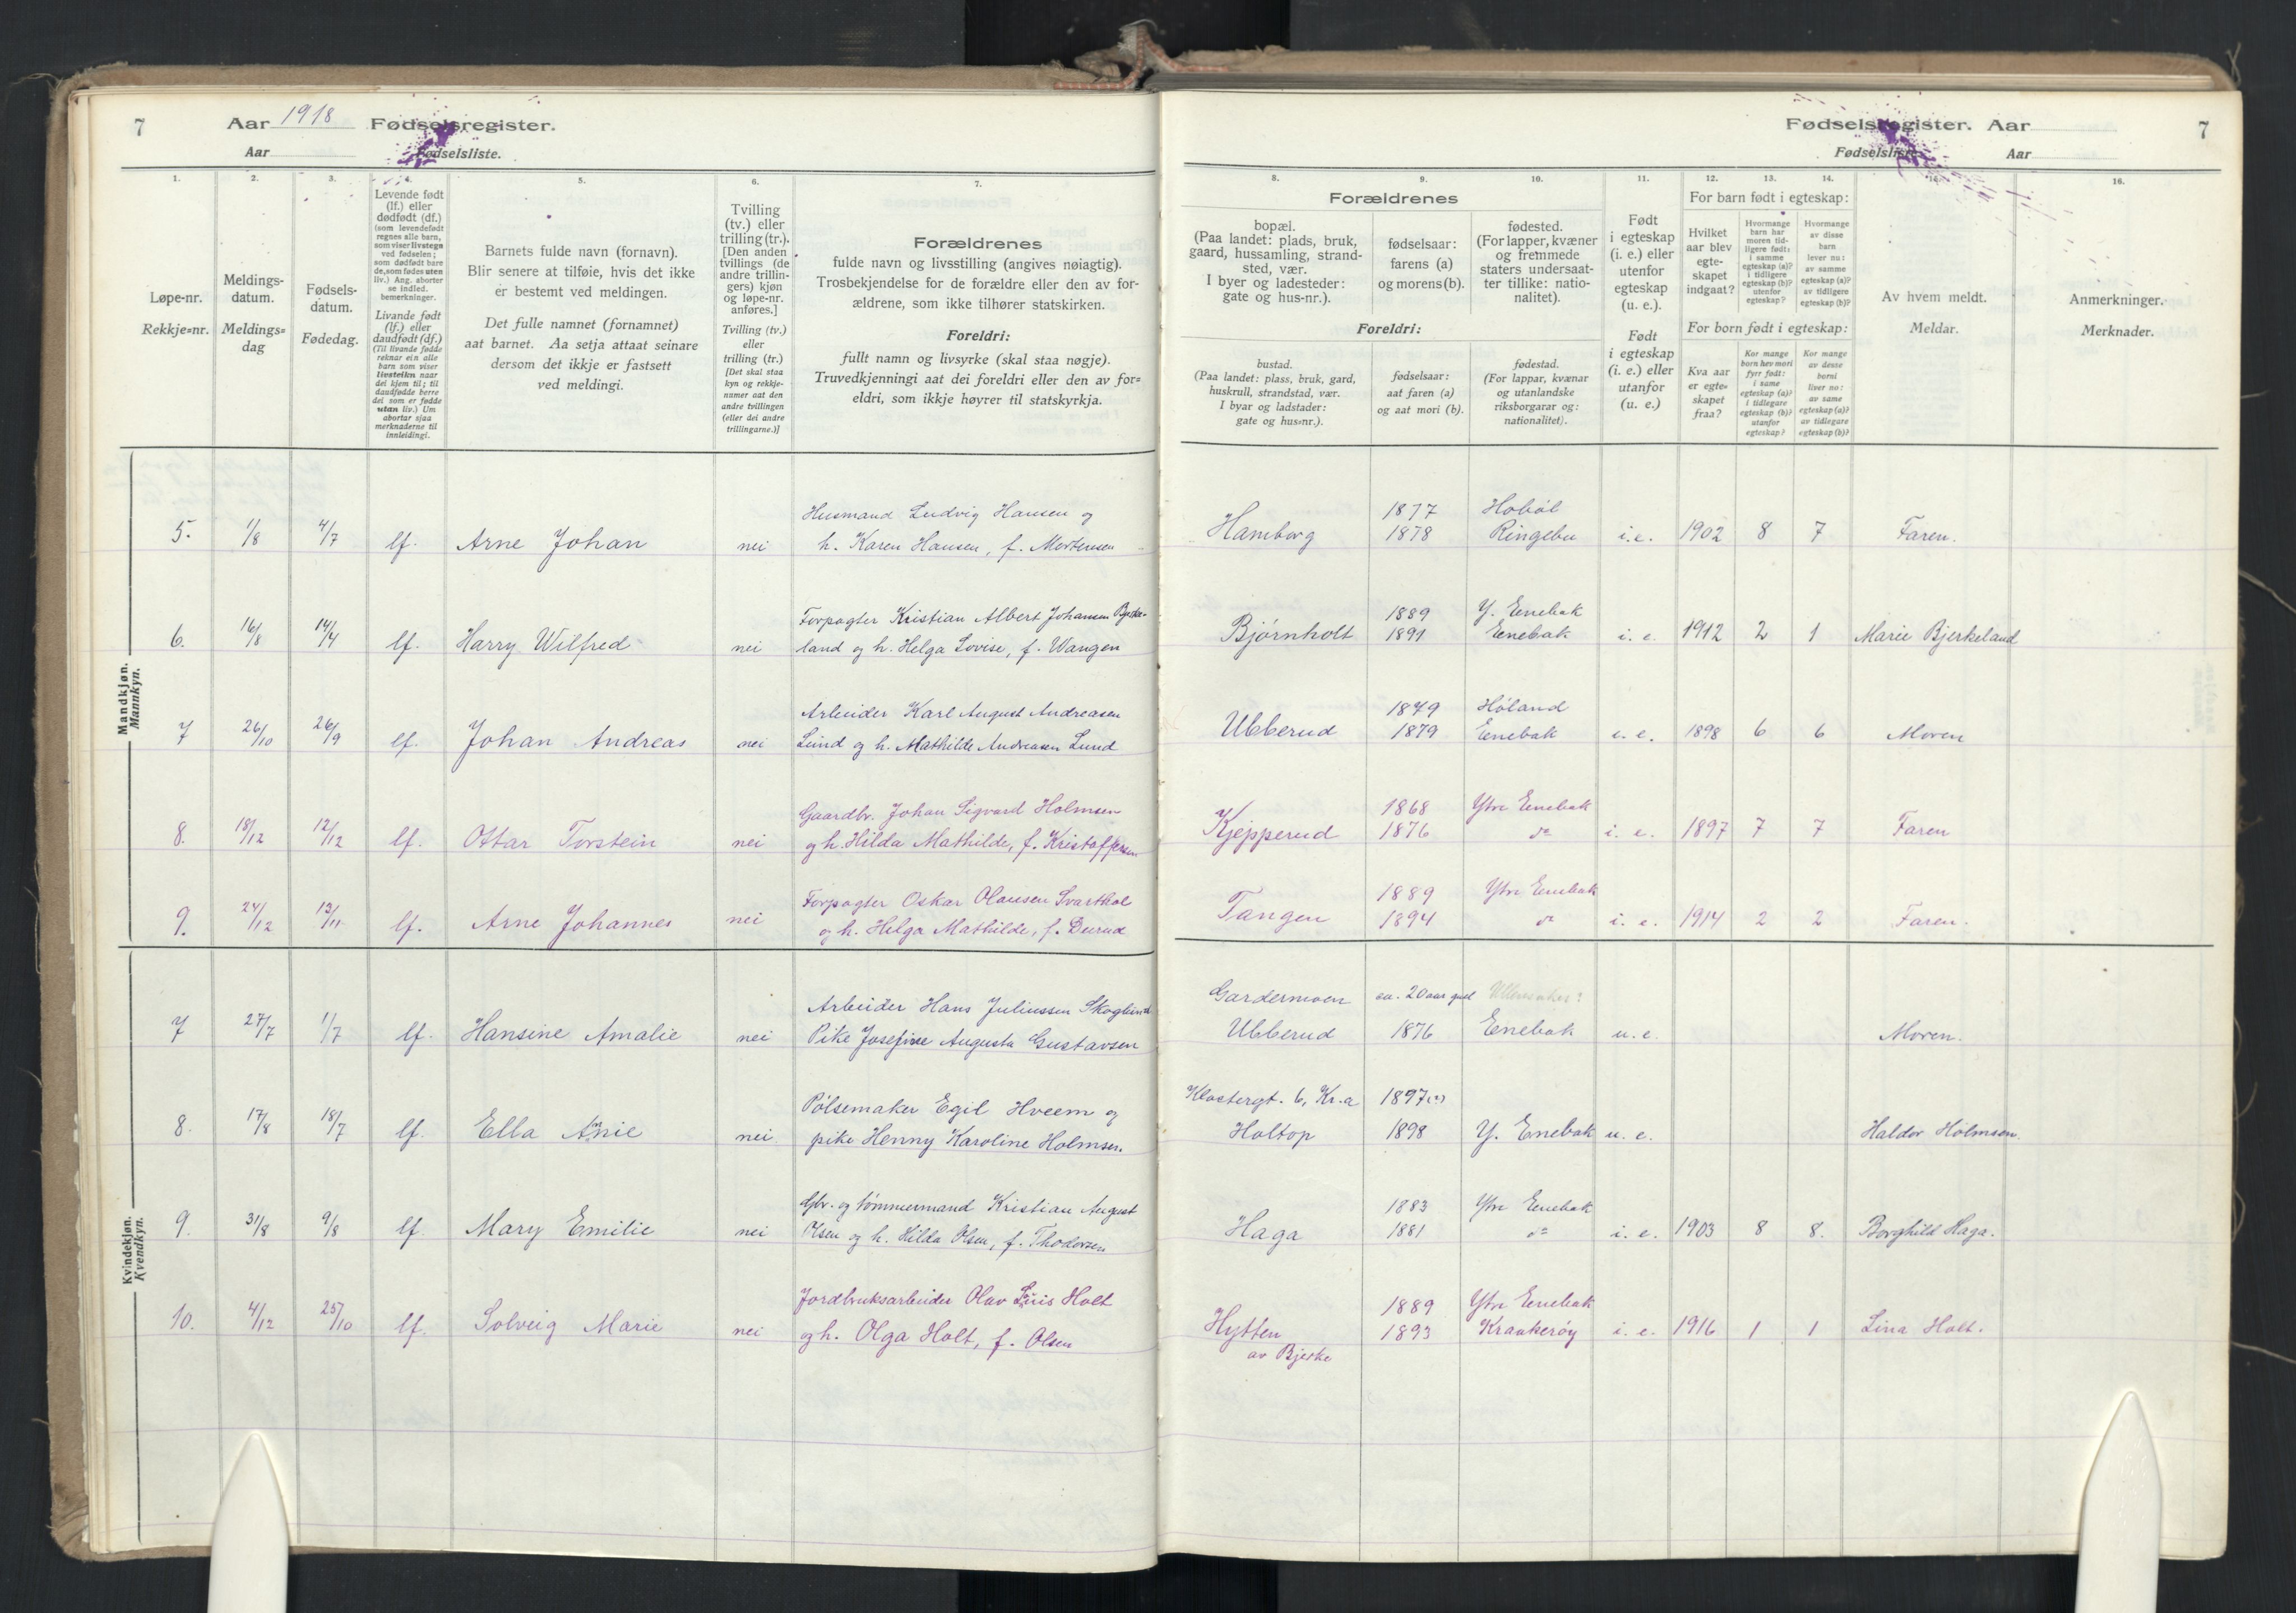 7
Aar 1918 Fødselsregister.
Aar Fødselsliste.
1.
2.
3.
4.
5.
6.
7.
Løpe-nr.
Rekkje=nr.
Meldings-
datum.
Meldings=
dag
Fødsels-
datum.
Fødedag.
Levende født
(lf.) eller
dødfødt (df.)
(som levendefødt
regnes alle barn,
som viser livstegn
ved fødselen;
som dødfødt bare
de, som fødes uten
liv.) Ang. aborter
se indled.
bemerkninger.
Livande født
(lf.) eller
daudfødt (df.)
(Til livande fødde
reknar ein alle
barn som viser
livsteikn naar
dei kjem til; til
daudfødde berre
dei som er fødde
utan liv.) Um
abortar sjaa
merknaderne til
innleidingi.
Barnets fulde navn (fornavn).
Blir senere at tilføie, hvis det ikke
er bestemt ved meldingen.
Det fulle namnet (fornamnet)
aat barnet. Aa setja attaat seinare
dersom det ikkje er fastsett
ved meldingi.
Tvilling
(tv.) eller
trilling (tr.).
[Den anden
tvillings (de
andre trillin-
gers) kjøn
og løpe-nr.
anføres.]
Tvilling (tv.)
eller
trilling (tr.)
[Det skal staa
kyn og rekkje-
numer aat den
andre tvillingen
(eller dei andre
trillingarne.)]
Forældrenes
fulde navn og livsstilling (angives nøiagtig).
Trosbekjendelse for de forældre eller den av for-
ældrene, som ikke tilhører statskirken.
Foreldri:
fullt namn og livsyrke (skal staa nøgje).
Truvedkjenningi aat dei foreldri eller den av for=
eldri, som ikkje høyrer til statskyrkja.
Mandkjøn.
Mannkyn.
5. 1/8 4/7 lf. Arne Johan nei Husmand Ludvig Hansen og
h. Karen Hansen, f. Mortensen
6. 16/8 14/4 lf. Harry Wilfred nei Forpagter Kristian Albert Johansen Bjerke-
land og h. Helga Lovise, f. Wangen
7 26/10 26/9 lf. Johan Andreas nei Arbeider Karl August Andreasen
Lund og h. Mathilde Andreasen Lund
8. 18/12 12/12 lf. Ottar Torstein nei Gaardbr. Johan Sigvard Holmsen
og h. Hilda Mathilde, f. Kristoffersen
9. 24/12 13/11 lf. Arne Johannes nei Forpagter Oskar Olausen Svarthol
og h. Helga Mathilde, f. Durud
Kvindekjøn.
Kvendkyn.
7 27/7 1/7 lf. Hansine Amalie nei Arbeider Hans Juliussen Skoglund
Pike Josefine Augusta Gustavsen
8. 17/8 18/7 lf. Ella Annie nei Pølsemaker Egil Hveem og
pike Henny Karoline Holmsen.
9. 31/8 9/8 lf. Mary Emilie nei Gbr. og tømmermand Kristian August
Olsen og h. Hilda Olsen, f. Thodorsen
10. 4/12 25/10 lf. Solveig Marie nei Jordbruksarbeider Olav Luis Holt
og h. Olga Holt, f. Olsen
Fødselsregister. Aar 7
Fødselsliste Aar
8.
9.
10.
11.
12.
13.
14.
15.
16.
Forældrenes
bopæl.
(Paa landet: plads, bruk,
gaard, hussamling, strand-
sted, vær.
I byer og ladesteder:
gate og hus-nr.).
fødselsaar:
farens (a)
og morens (b).
fødested.
(For lapper, kvæner
og fremmede
staters undersaat-
ter tillike: natio-
nalitet).
Foreldri:
bustad.
(Paa landet: plass, bruk, gard,
huskrull, strandstad, vær.
I byar og ladstader:
gate og hus=nr.).
fødselsaar:
aat faren (a)
og aat mori (b).
fødestad.
(For lappar, kvænar
og utanlandske
riksborgarar og:
nationalitet).
Født
i egteskap
(i. e.) eller
utenfor
egteskap
(u. e.).
Født
i egteskap
(i. e.) eller
utanfor
(u. e.)
For barn født i egteskap:
Hvilket
aar blev
egte-
skapet
indgaat?
Hvormange
barn har
moren tid-
ligere født:
i samme
egteskap (a)?
i tidligere
egteskap (b)?
utenfor
egteskap?
Hvormange
av disse
barn
lever nu:
av samme
egteskap (a)?
av tidligere
egteskap (b)?
For born født i egteskap:
Kva aar
er egte=
skapet
fraa?
Kor mange
born hev mori
fyrr født:
i same
egteskap (a)?
i tidlegare
egteskap (b)?
utanfor
egteskap?
Kor mange
av desse
borni
liver no:
av same
egteskap (a)?
av tidlegare
egteskap (b)?
Av hvem meldt.
Meldar.
Anmerkninger.
Merknader.
1877 Hobøl
Hamborg 1878 Ringebu i.e. 1902 8 7 Faren.
1889 Y. Enebak
Bjørnholt 1891 Enebak i. e. 1912 2 1 Marie Bjerkeland
1879 Høland
Ubberud 1879 Enebak i. e. 1898 6 6 Moren
1868 Ytre Enebak
Kjepperud 1876 do i. e. 1897 7 7 Faren
1889 Ytre Enebak
Tangen 1894 do i. e. 1914 2 2 Faren.
Gardermoen ca. 20 aar gml Ullensaker?
Ubberud 1876 Enebak u. e. Moren.
Klostergt. 6, Kr.a 1897(?)
Holtop 1898 Y. Enebak u. e. Haldor Holmsen
1883 Ytre Enebak
Haga 1881 do i. e. 1903 8 8. Borghild Haga.
1889 Ytre Enebak
Hytten 1893 Kraakerøy i. e. 1916 1 1 Lina Holt.
av Bjerke